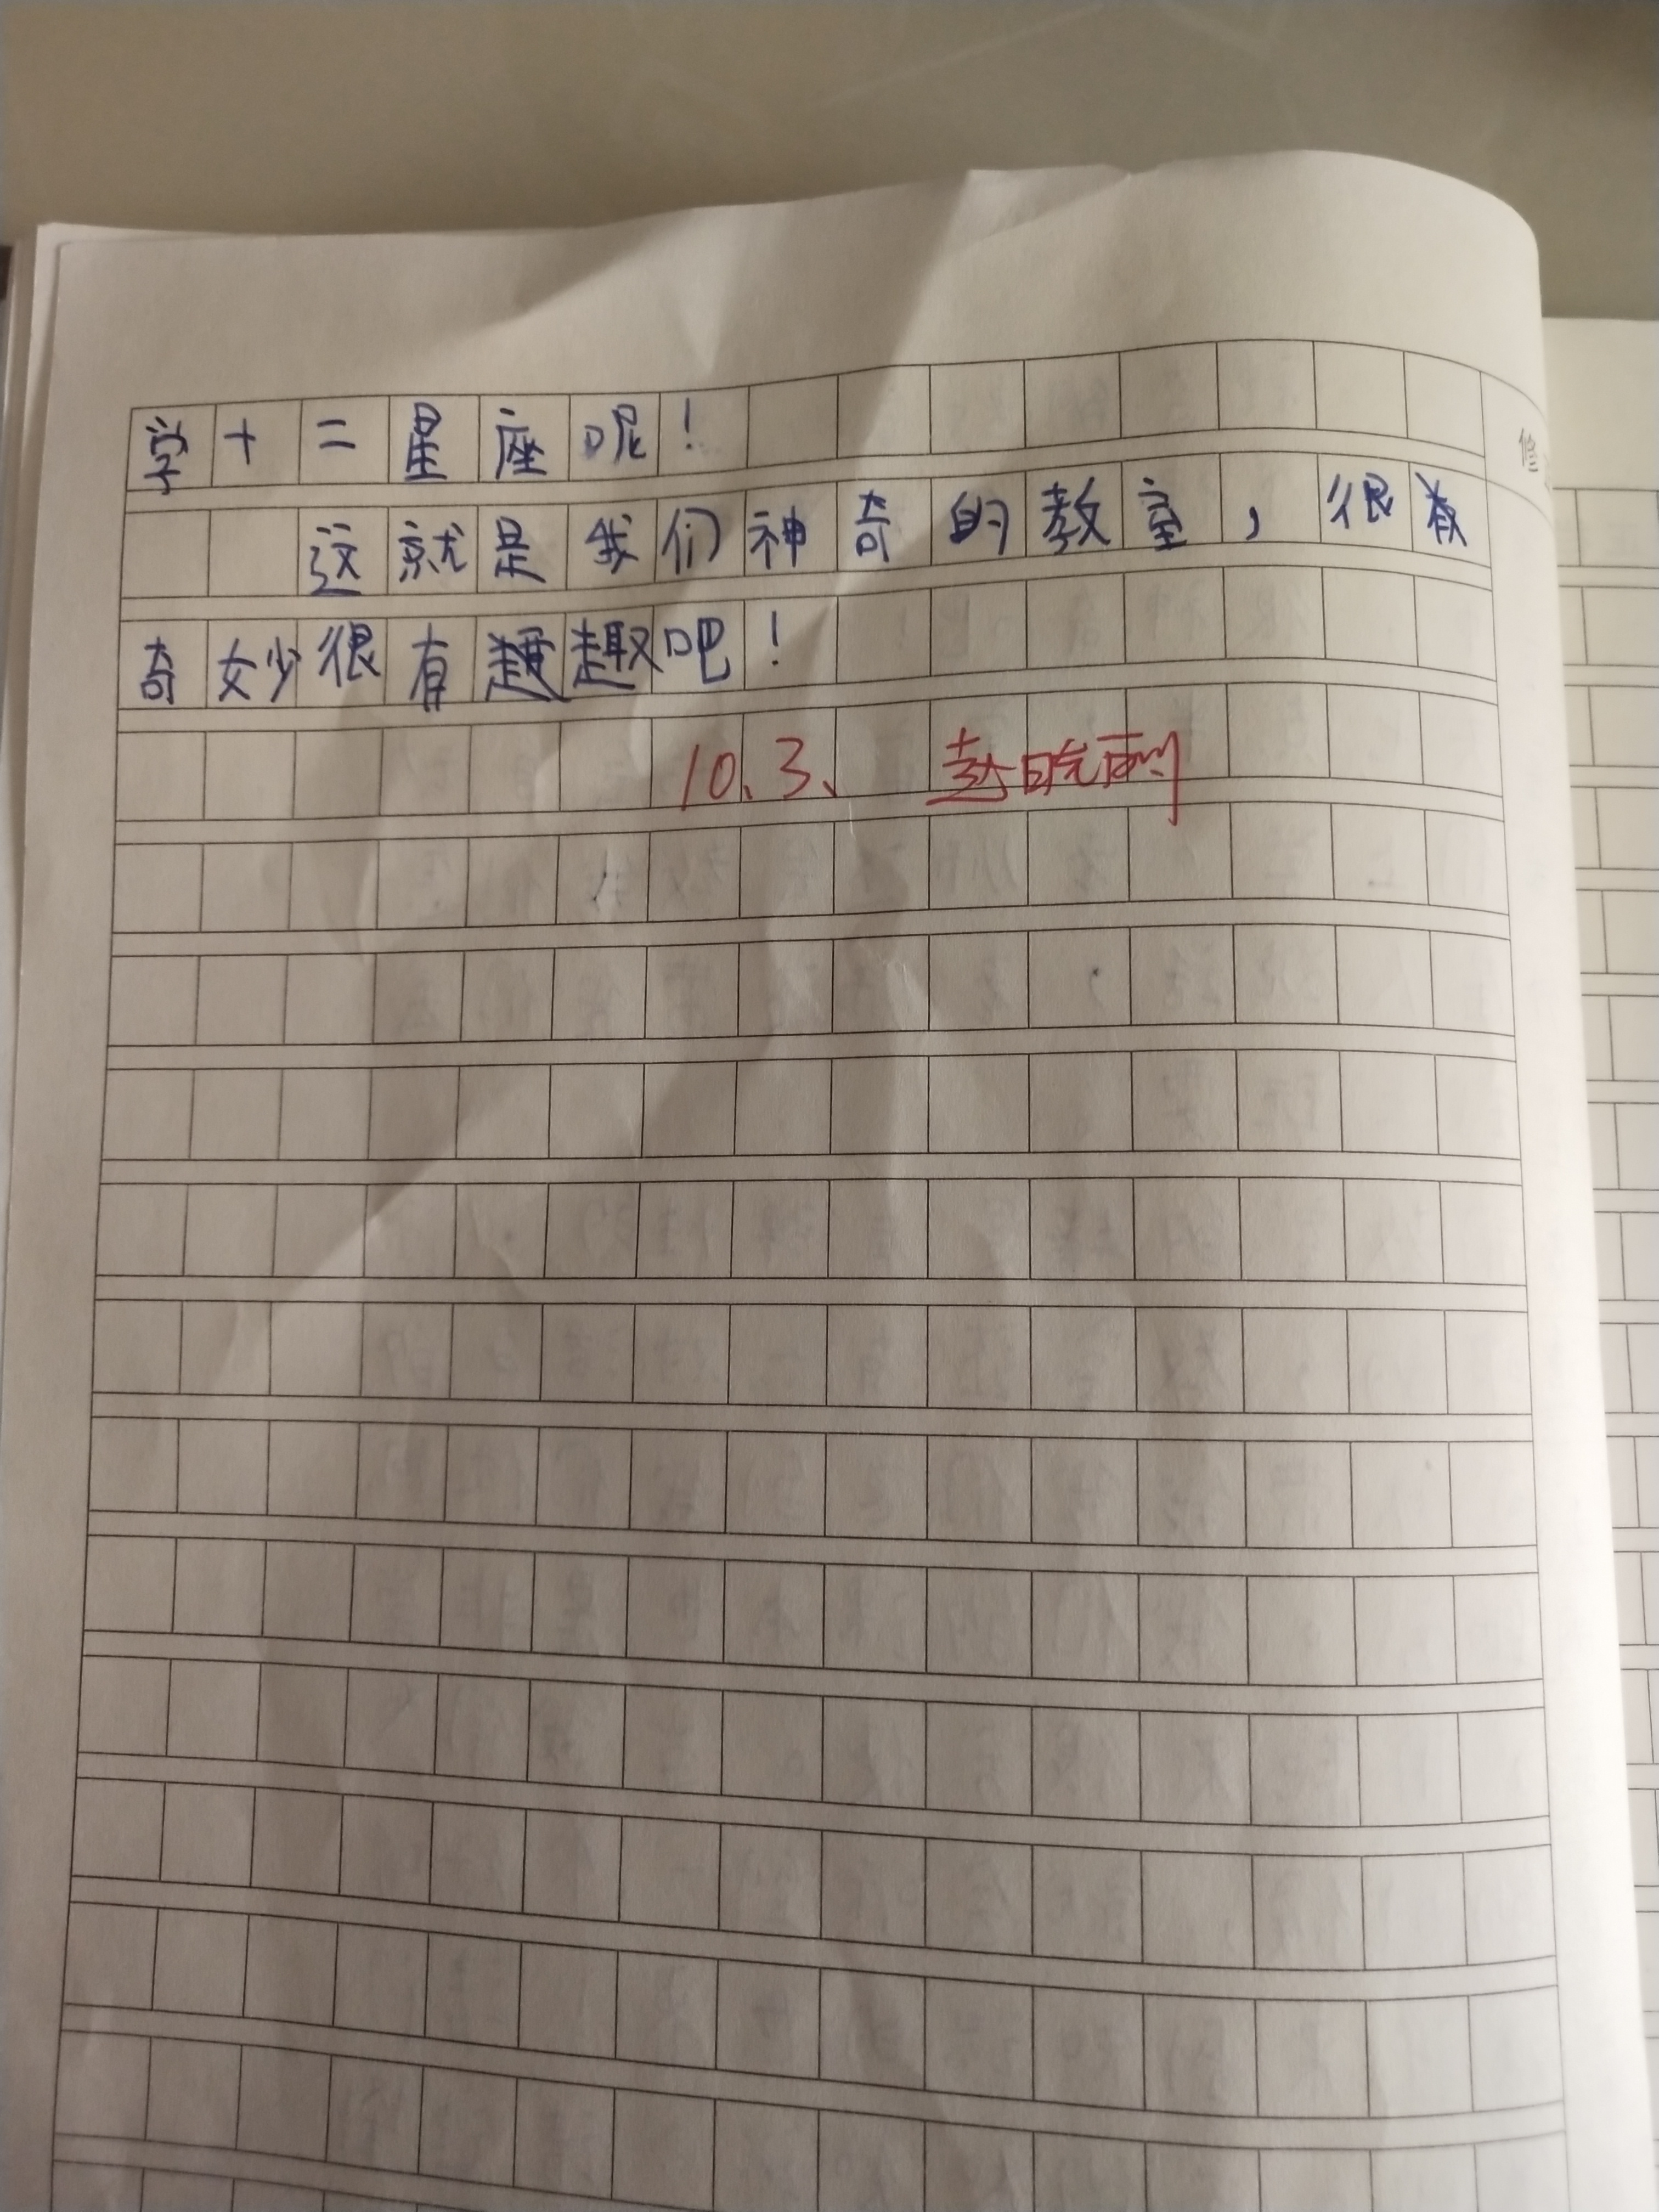 学十二星座呢！
这就是我们神奇的教室，很
奇妙很有趣吧！
10.3、 赵晓雨
修